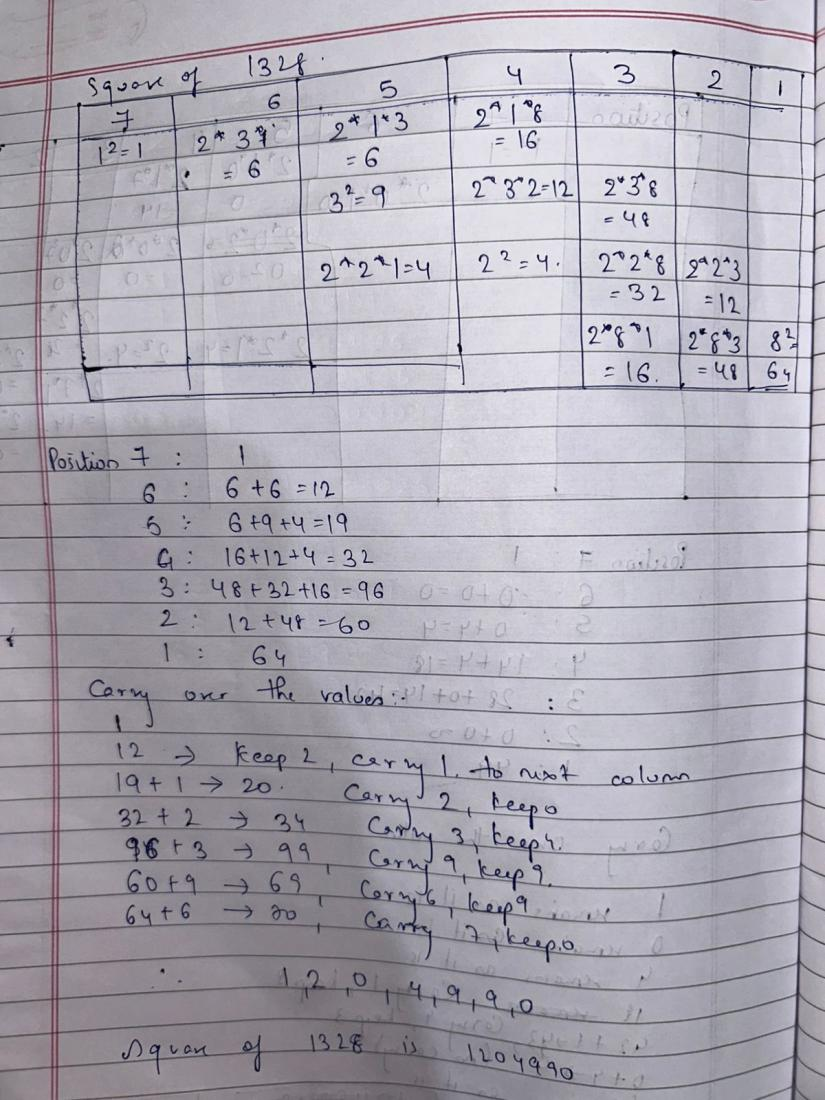 Square of 1328.
7 6 5 4 3 2 1
1²=1 2*3*1 2*1*3 2*1*8
= 6 = 6 = 16
3²=9 2*3*2=12 2*3*8
= 48
2*2*1=4 2²=4. 2*2*8 2*2*3
= 32 =12
2*8*1 2*8*3 8²=
= 16. =48 64
Position 7 : 1
6 : 6+6=12
5 : 6+9+4=19
4 : 16+12+4=32
3 : 48+32+16=96
2 : 12+48=60
1 : 64
Carry over the values:-
1
12 → keep 2, carry 1. to next column
19+1 → 20. Carry 2, keep 0
32+2 → 34 Carry 3, keep 4.
96+3 → 99, Carry 9, keep 9.
60+9 → 69, Carry 6, keep 9
64+6 → 70, Carry 7, keep 0
∴ 1,2,0,4,9,9,0
Square of 1328 is 1204990